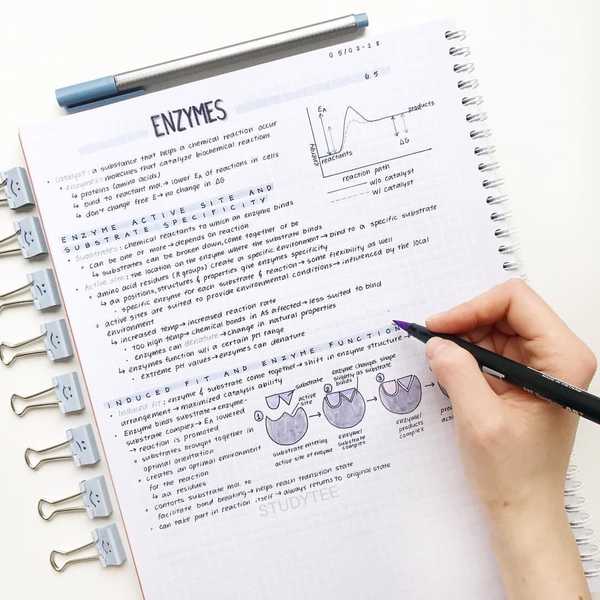 05/03-18
6.5
ENZYMES
catalyst: a substance that helps a chemical reaction occur
enzymes: molecules that catalyze biochemical reactions
↳ proteins (amino acids)
↳ bind to reactant mol. → lower EA of reactions in cells
↳ don't change free E → no change in ΔG
EA
products
energy
ΔG
reactants
reaction path
w/o catalyst
w/ catalyst
ENZYME ACTIVE SITE AND
SUBSTRATE SPECIFICITY
substrates: chemical reactants to which an enzyme binds
• can be one or more → depends on reaction
↳ substrates can be broken down, come together or be
Active site: the location on the enzyme where the substrate binds
• amino acid residues (R groups) create a specific environment → bind to a specific substrate
↳ aa positions, structures & properties give enzymes specificity
• specific enzyme for each substrate & reaction → some flexibility as well
• active sites are suited to provide environmental conditions → influenced by the local
environment
↳ increased temp → increased reaction rate
• too high temp → chemical bonds in AS affected → less suited to bind
• enzymes can denature → change in natural properties
↳ enzymes function w/i a certain pH range
• extreme pH values → enzymes can denature
INDUCED FIT AND ENZYME FUNCTION
induced fit: enzyme & substrate come together → shift in enzyme structure →
arrangement → maximized catalysis ability
• Enzyme binds substrate → enzyme-
substrate complex → EA lowered
→ reaction is promoted
• substrates brought together in
optimal orientation
• creates an optimal environment
for the reaction
↳ aa residues
• contorts substrate mol. to
facilitate bond breaking → helps reach transition state
• can take part in reaction itself → always returns to original state
substrate
active
site
enzyme changes shape
slightly as substrate
binds
1
2
3
substrate entering
active site of enzyme
enzyme/
substrate
complex
enzyme/
products
complex
STUDYTEE